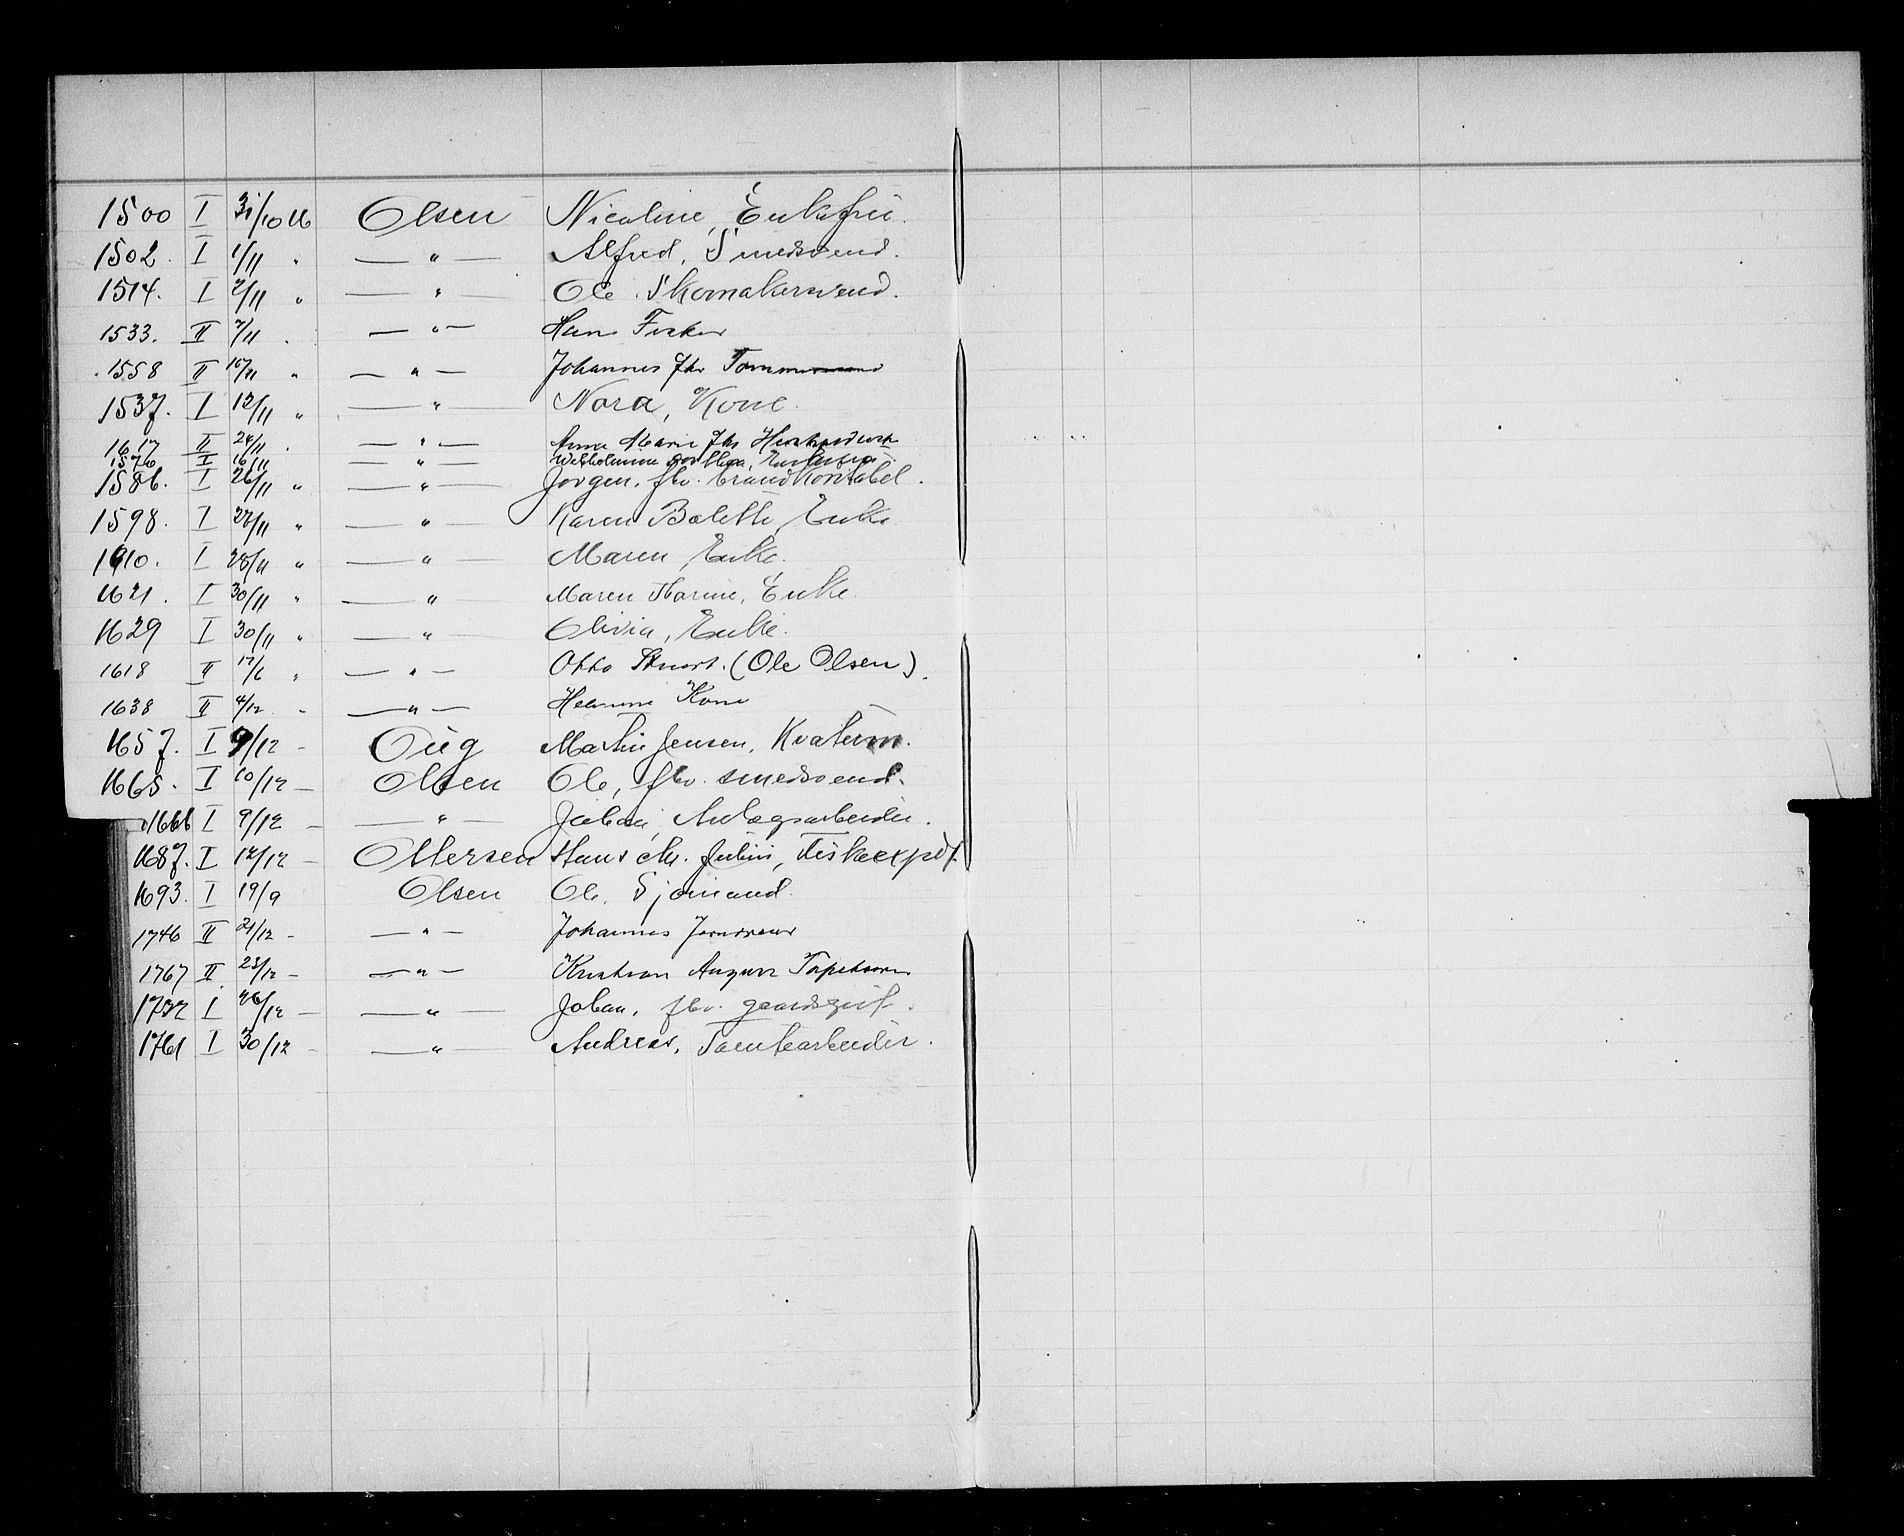 1500 I 31/10 16 Olsen Nicoline, Enkefru.
1502. I 1/11 " — " — Alfred, Smedsvend.
1514. I 2/11 " — " — Ole. Skomakersvend.
1533. II 7/11 . — " — Hans Fisker
1558 II 10/11 " — " — Johannes fhv Tømmermand
1537. I 13/11 " — " — Nora, Kone.
1617 II 24/11 . — " — Anna Marie fhv
1576 I 16/11 — " — Wilhelmine Enkefru.
1586. I 26/11 " — " — Jørgen, fhv. brandkonstabel.
1598. I 28/11 " — " — Karen Bolette, Enke
1610. I 28/11 " — " — Maren, Enke.
1621. I 30/11 " — " — Maren Marine, Enke.
1629 I 30/11 " — " — Olivia, Enke.
1618 II 17/6 " — " — Otto (Ole Olsen).
1638 II 4/12 - — " — Kone
1657. I 9/12 - Martin Jensen,
1665. I 10/12 — Olsen Ole, fhv. smedsvend.
1666 I 9/12 — — " — Anlægsarbeider.
1687. I 12/12 — Ottersen Hans Chr. Julius, Fiskeexpdt.
1693. I 19/9 Olsen Ole, Sjømand.
1746 II 21/12 - — " — Johannes
1767 II 23/12 - — " — Kristian August
1732 I 26/12 — — " — Johan, fhv. gaardsgut.
1761 I 30/12 - — " — Andreas, Tomtearbeider.